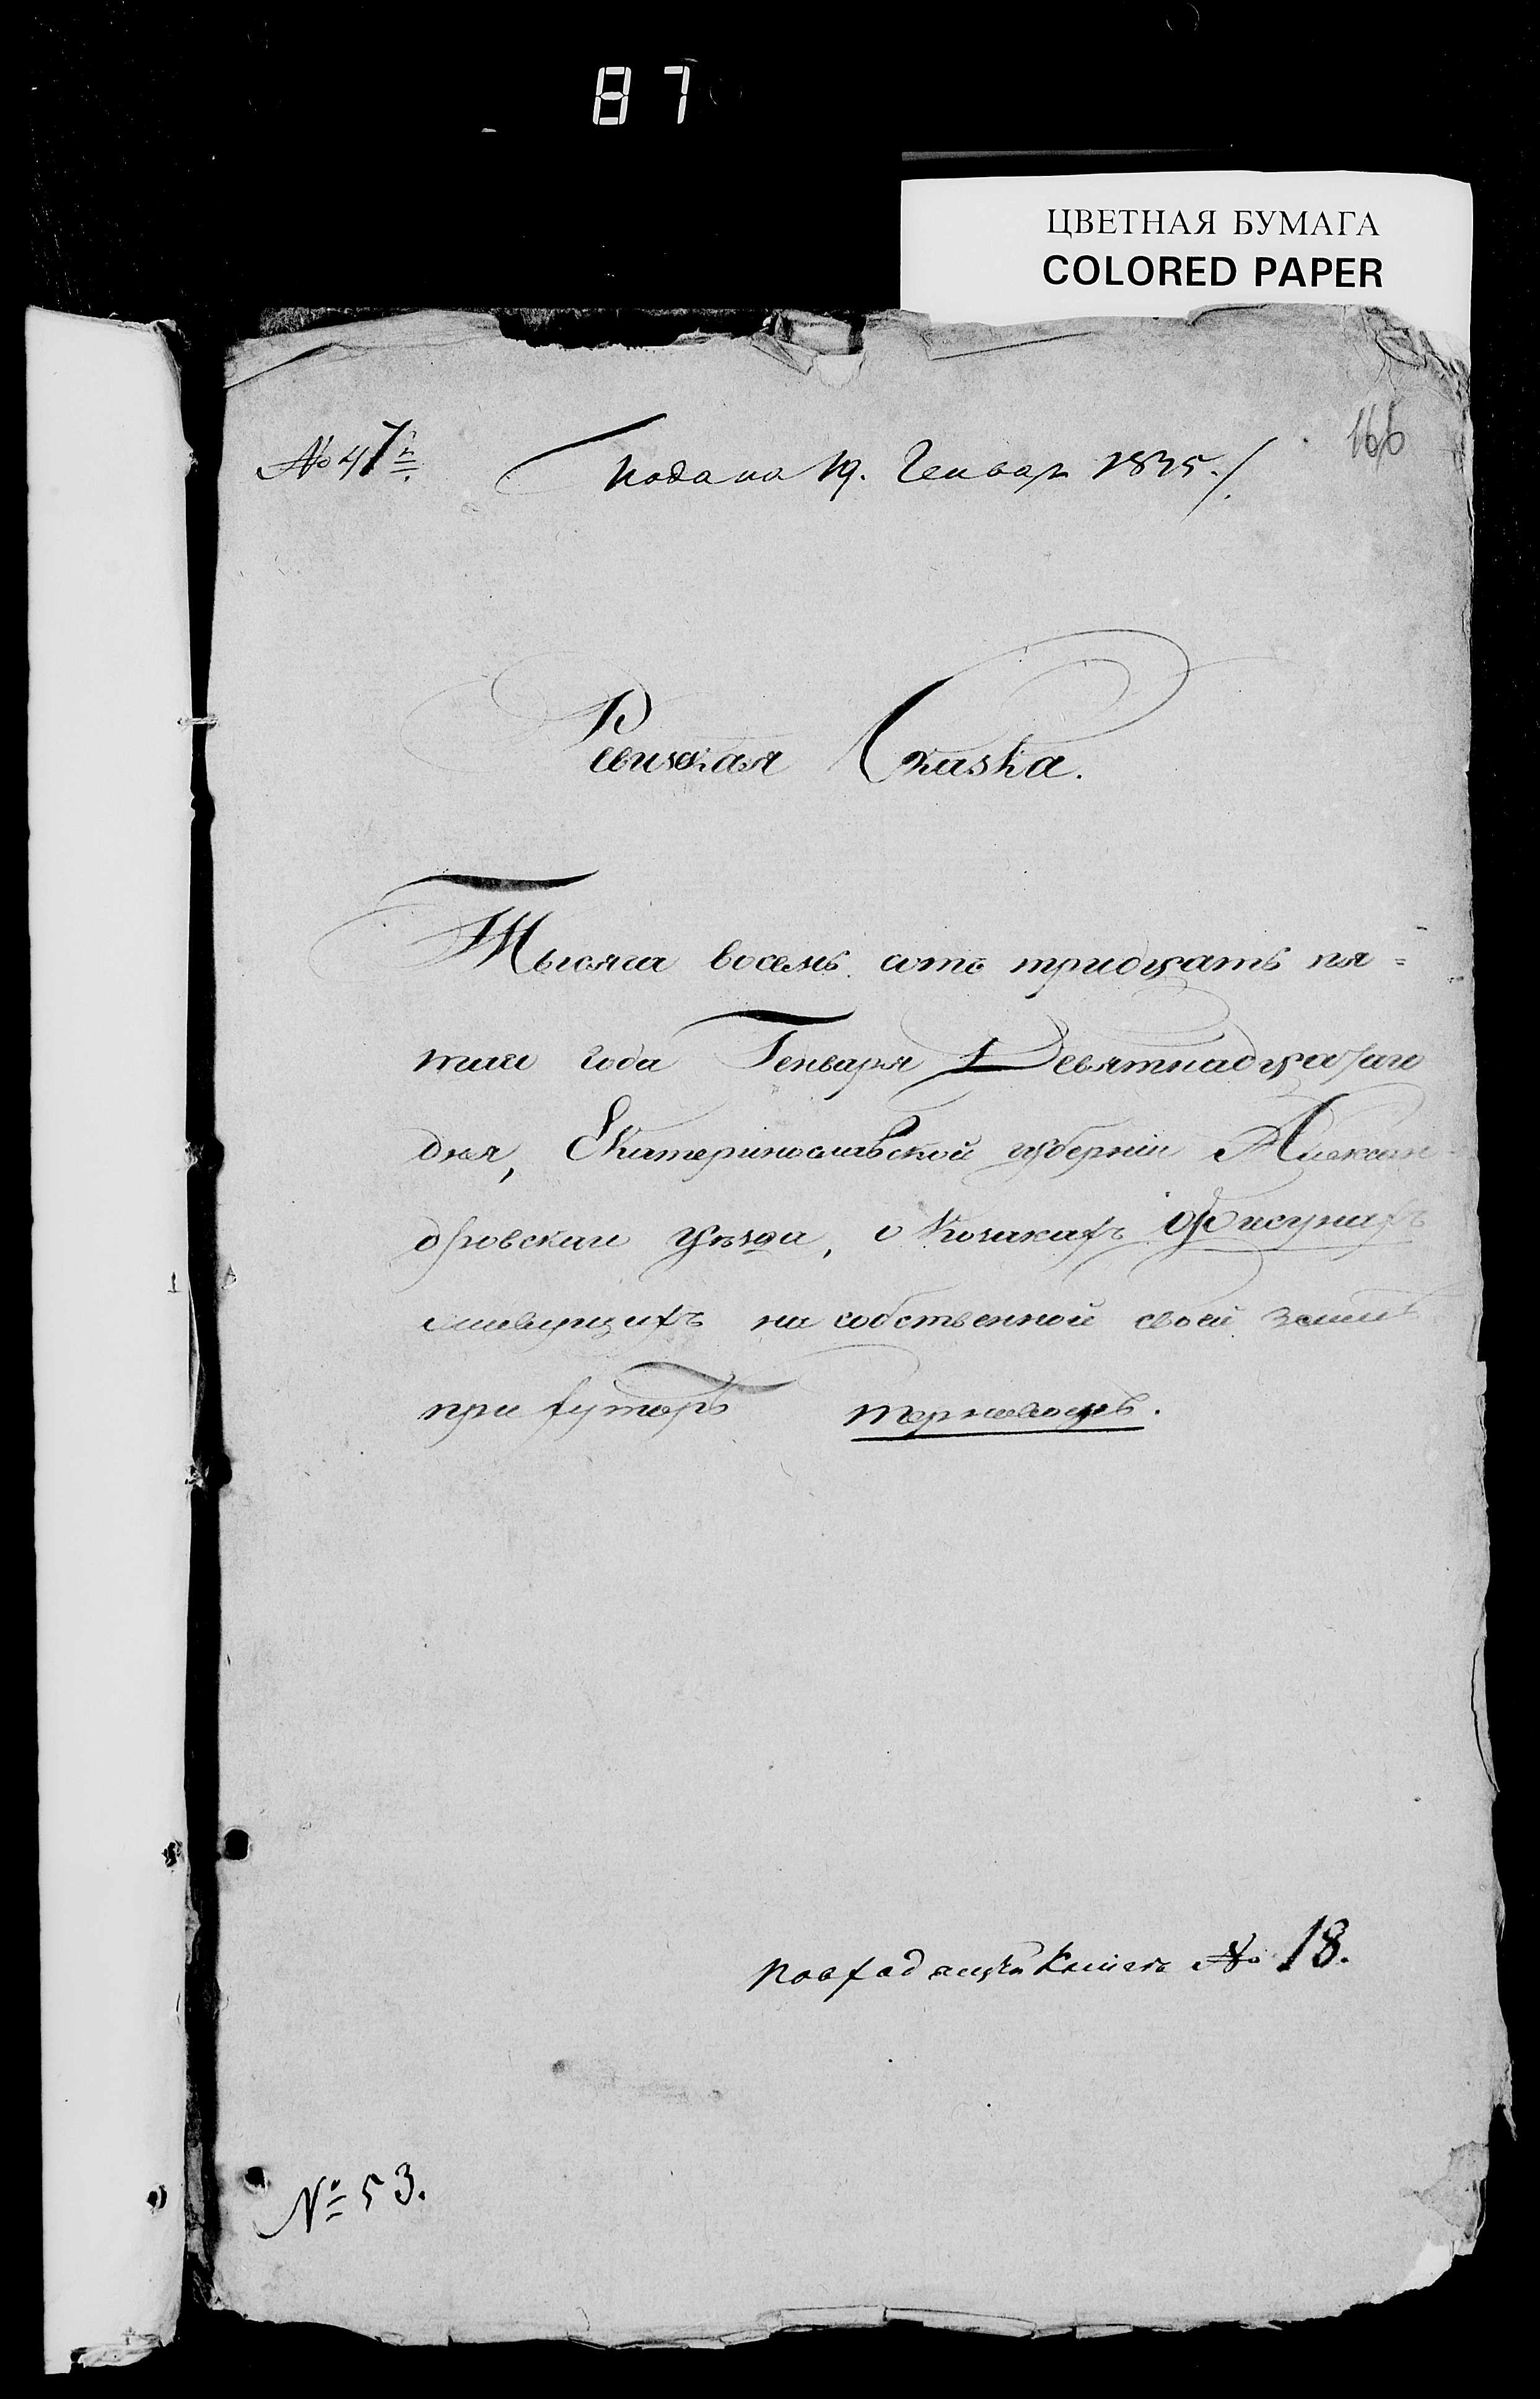 87
ЦВЕТНАЯ БУМАГА
COLORED PAPER
166
№ 47й
подана 19. Генвар 1835.
Ревижская Сказка.
Тысяча восемь сотъ тридцать пя=
таго года Генваря Девятнадцатаго
дня, Екатеринославской губерніи Алексан
дровскаго уѣзда, о Козакахъ Фисунахъ
живущихъ на собственной своей землѣ
при хуторѣ терноватѣ.
№ 18.
№ 53.